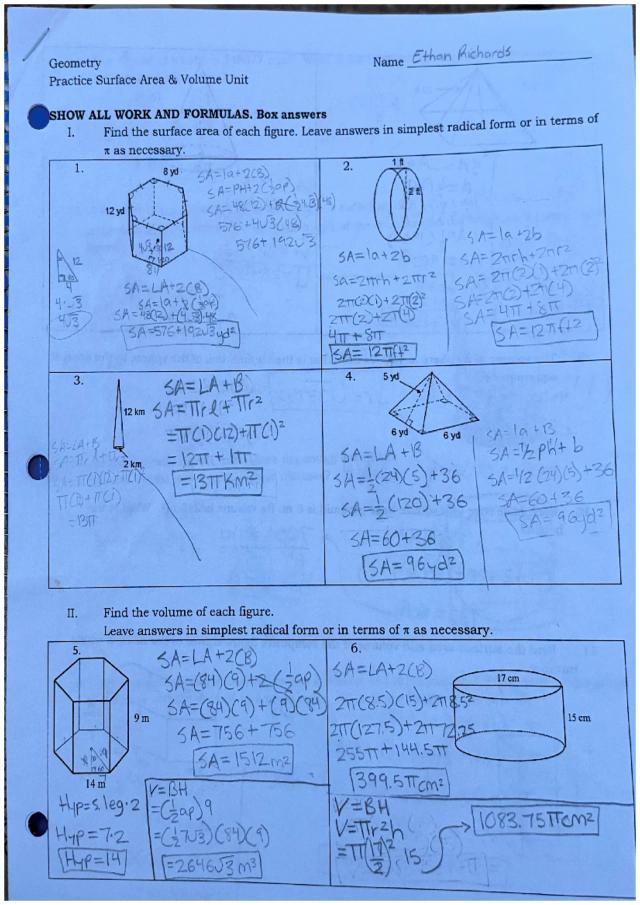 Geometry
Name Ethan Richards
Practice Surface Area & Volume Unit
SHOW ALL WORK AND FORMULAS. Box answers
I. Find the surface area of each figure. Leave answers in simplest radical form or in terms of
π as necessary.
1.
8 yd
12 yd
SA=la+2(B)
SA=PH+2(½ap)
576+4√3(48)
576+192√3
12
4
4·√3
4√3
SA=LA+2(B)
SA=576+192√3 yd²
2.
1 ft
2 ft
SA=la+2b
Sa=2πrh+2πr²
2π(2)(1)+2π(2)²
2π(2)+2π(4)
4π+8π
SA=12πft²
SA=la+2b
SA=2πrh+2πr²
SA=2π(2)(1)+2π(2)²
SA=2π(2)+2π(4)
SA=4π+8π
SA=12πft²
3.
12 km
2 km
SA=LA+B
SA=πrl+πr²
=π(1)(12)+π(1)²
=12π+1π
=13πKm²
SA=LA+B
=13π
4.
5 yd
6 yd
6 yd
SA=LA+B
SA=½(24)(5)+36
SA=½(120)+36
SA=60+36
SA=96yd²
SA=la+B
SA=½ph+b
SA=½(24)(5)+36
SA=60+36
SA=96yd²
II. Find the volume of each figure.
Leave answers in simplest radical form or in terms of π as necessary.
5.
9 m
14 m
SA=LA+2(B)
SA=(84)(9)+2(½ap)
SA=(84)(9)+(9)(84)
SA=756+756
SA=1512m²
Hyp=s.leg·2
Hyp=7·2
Hyp=14
V=BH
=(½ap)9
=(½7√3)(84)(9)
=2646√3m³
6.
17 cm
15 cm
SA=LA+2(B)
2π(8.5)(15)+2π8.5²
2π(127.5)+2π72.25
255π+144.5π
399.5πcm²
V=BH
V=πr²h
=π(17/2)²·15
1083.75πcm²